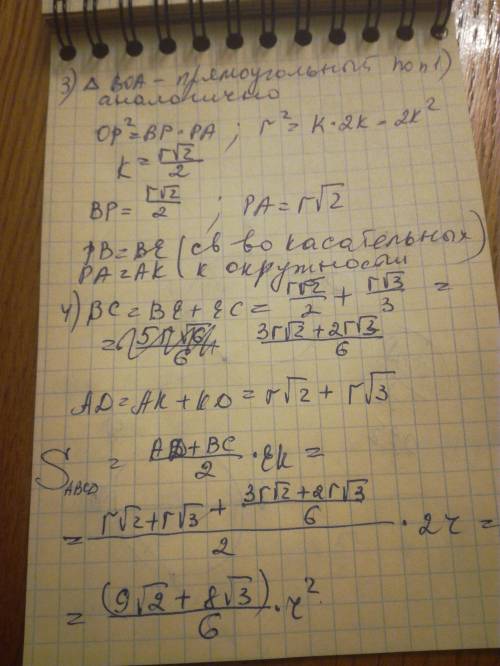 3) Δ BOA - прямоугольный по п1)
аналогично
OP² = BP · PA ; r² = K · 2K = 2K²
K = r√2/2
BP = r√2/2 ; PA = r√2
PB = BE (св во касательных
PA = AK к окружности)
4) BC = BE + EC = r√2/2 + r√3/3 =
= (3r√2 + 2r√3)/6
AD = AK + KD = r√2 + r√3
S_ABCD = (AD + BC)/2 · EK =
= (r√2 + r√3 + (3r√2 + 2r√3)/6)/2 · 2r =
= (9√2 + 8√3)/6 · r²